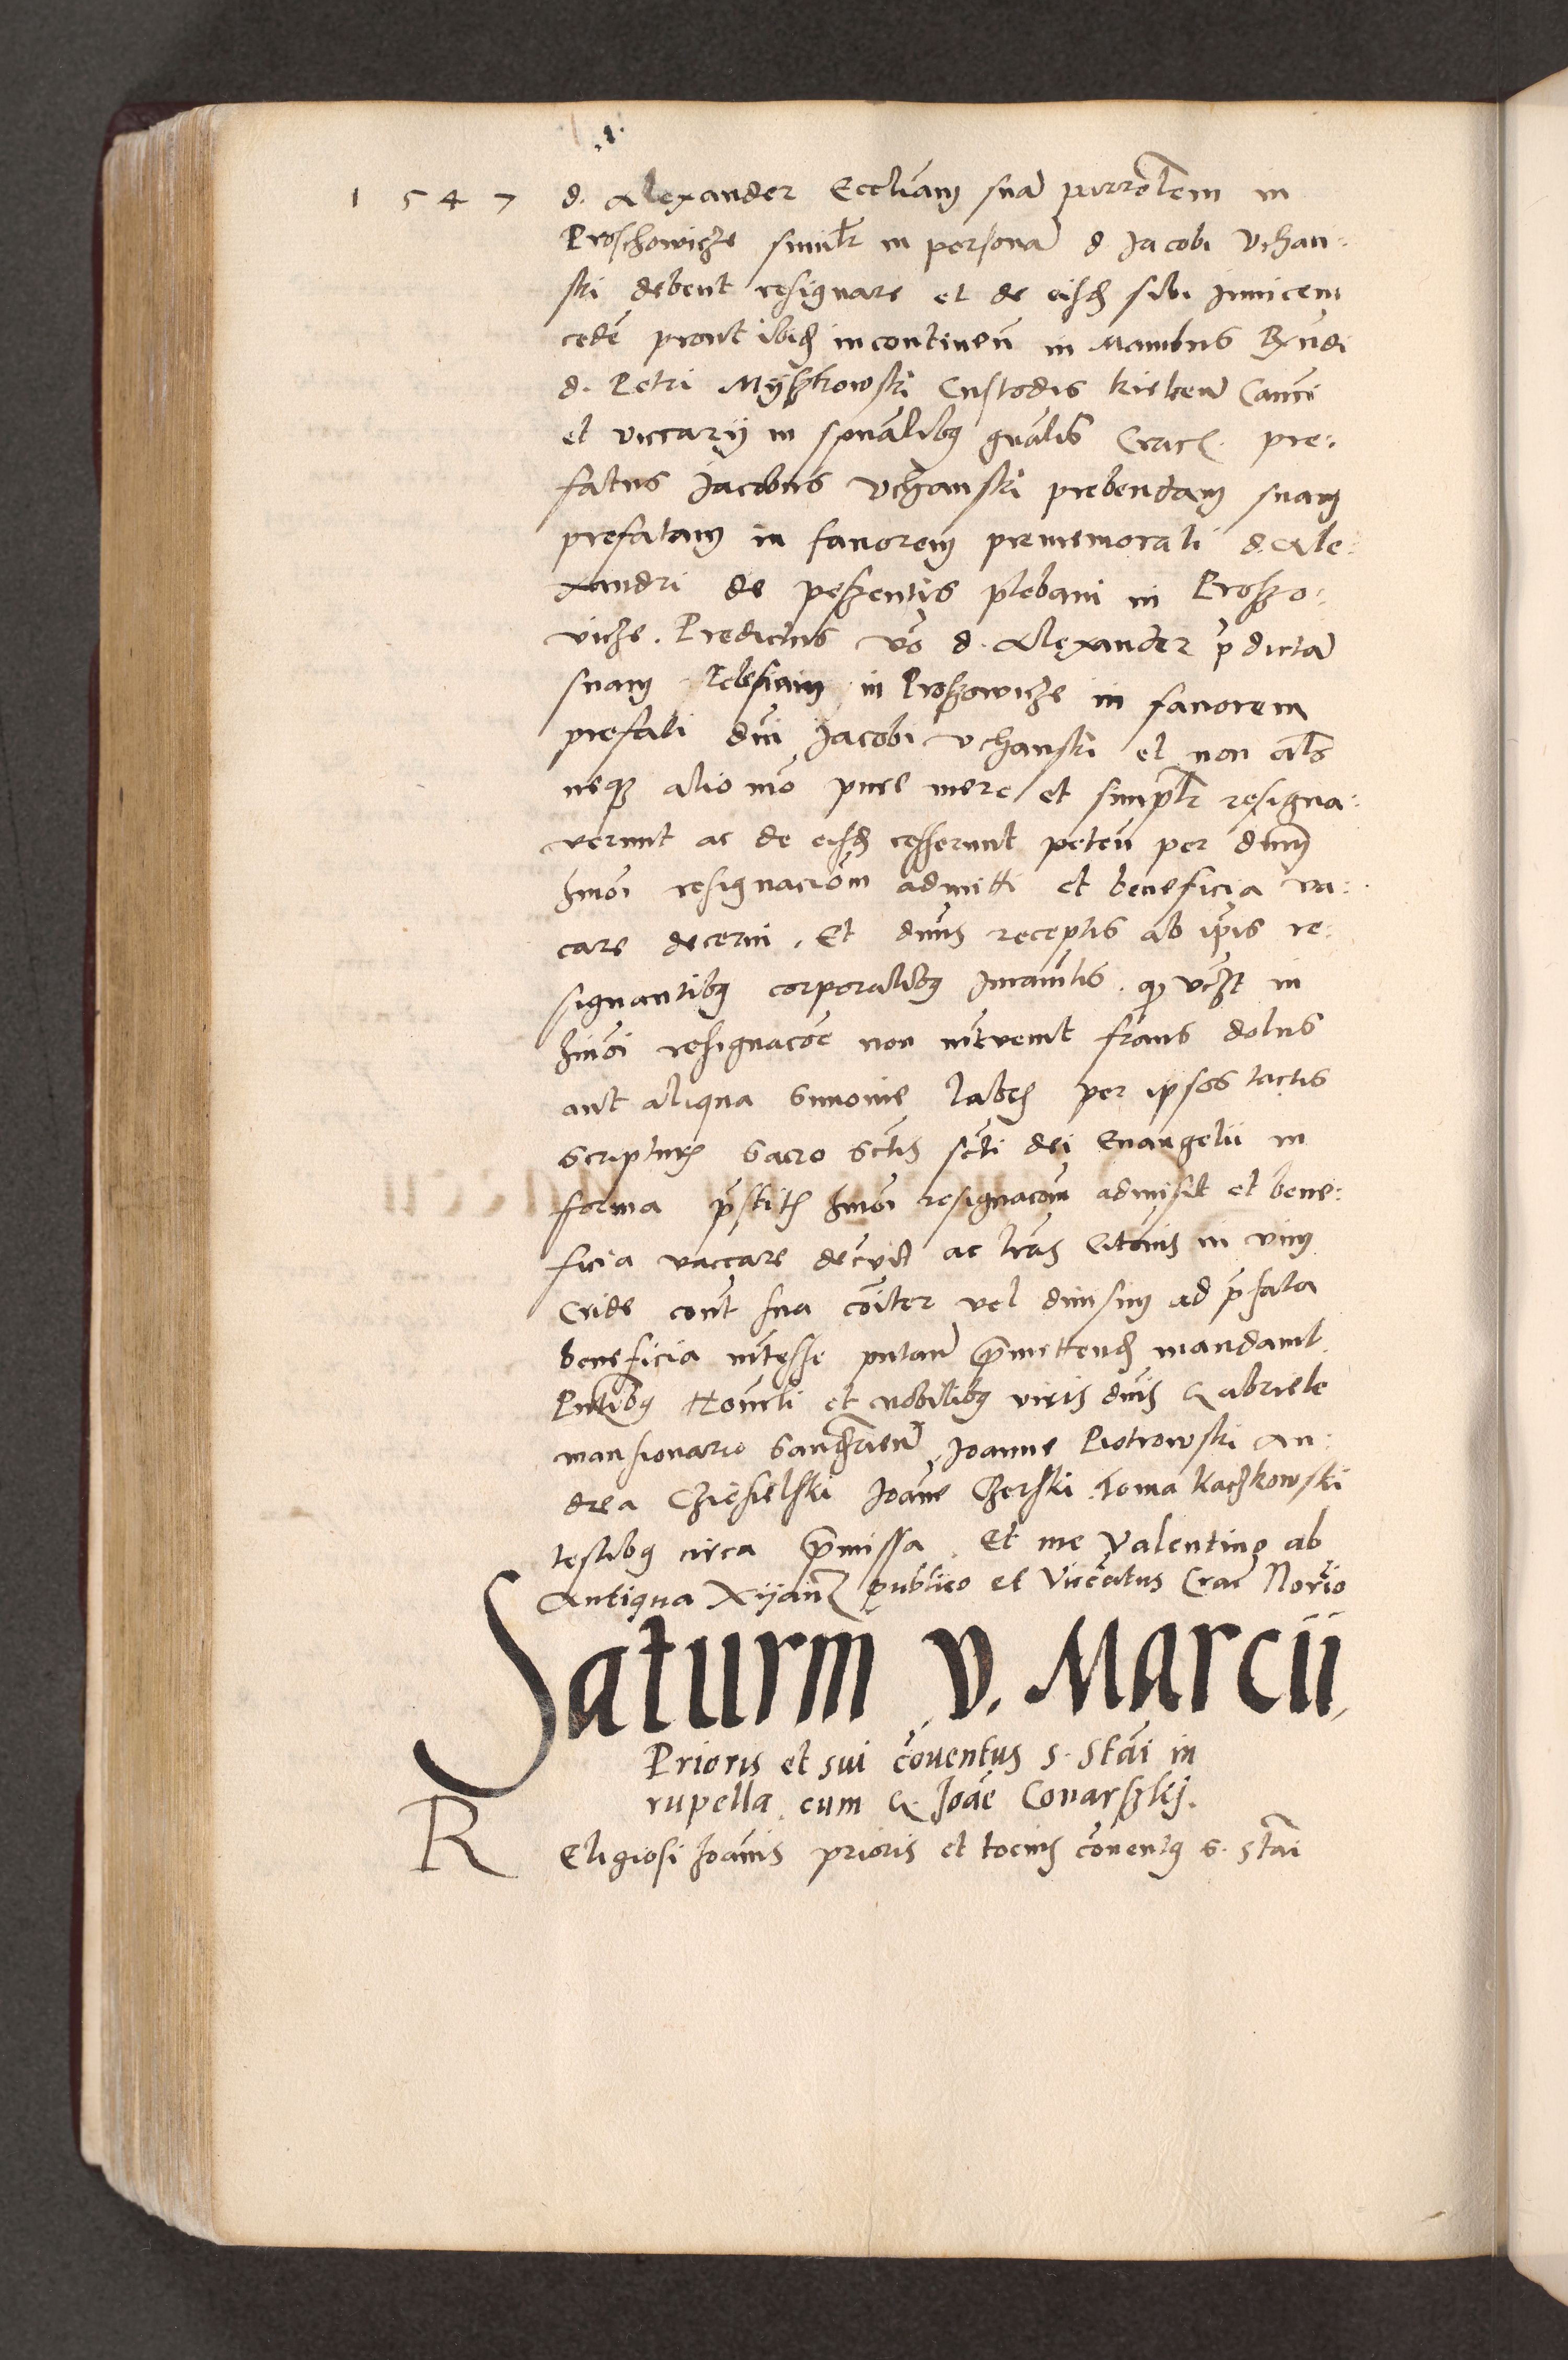 1547 d. Alexander Eccliam sua parrolem in
Proschowicze similr in persona d Jacobi Vchan:
ski debent resignare et de eisd sibi Invicem
cede prout ibid in continen in Manibus Rndi
d. Petri Myszkowski Custodis kielcen Canci
et viccarij in spualibq gnalis Crac. pre:
fatus Jacobus Vchanski prebendam suam
prefatam in fauorem prememorati d. Ale:
xandri de peszentis plebani in Proszo:
vicze. Predictus vo d. Alexander pdicta
suam in Proszowicze in fauorem
prefati dni Jacobi Vchanski et non als
neqz alio mo pure mere et simplr resigna:
verunt ac de eisd cesserunt peten per dnm
hmoi resignaciom admitti et beneficia va:
care decerni. Et dnus receptis ab ipis re:
signantibq corporalibq Iuramtis. qz vczt in
hmoi resignacoe non intrvenit fraus dolus
aut aliqua Simonie labes per ipsos tactis
Scripturis Sacro Sctis scti dei Euangelii in
fforma pstitis hmoi resignacom admisit et bene:
ficia vaccare decrvit ac lras Citonis in vim
Cride cont sua coiter vel diuisim ad pfata
beneficia intesse putan pmittend mandauit.
Pntibq et nobilibq viris dnis Gabriele
mansionario Sandomrien Joanne Piotrowski An:
drea Cziesielski Joane Czerski Toma Kaczkowski
testibq circa pmissa. Et me Valentino ab
Antiqua Xijanz publico et Viccatus Crac Norio
Saturni V. Marcii
Prioris et sui coventus S. Stai in
rupella cum G. Joae Conarszkij.
R Eligiosi Joanis prioris et tocius conentq S. Stai